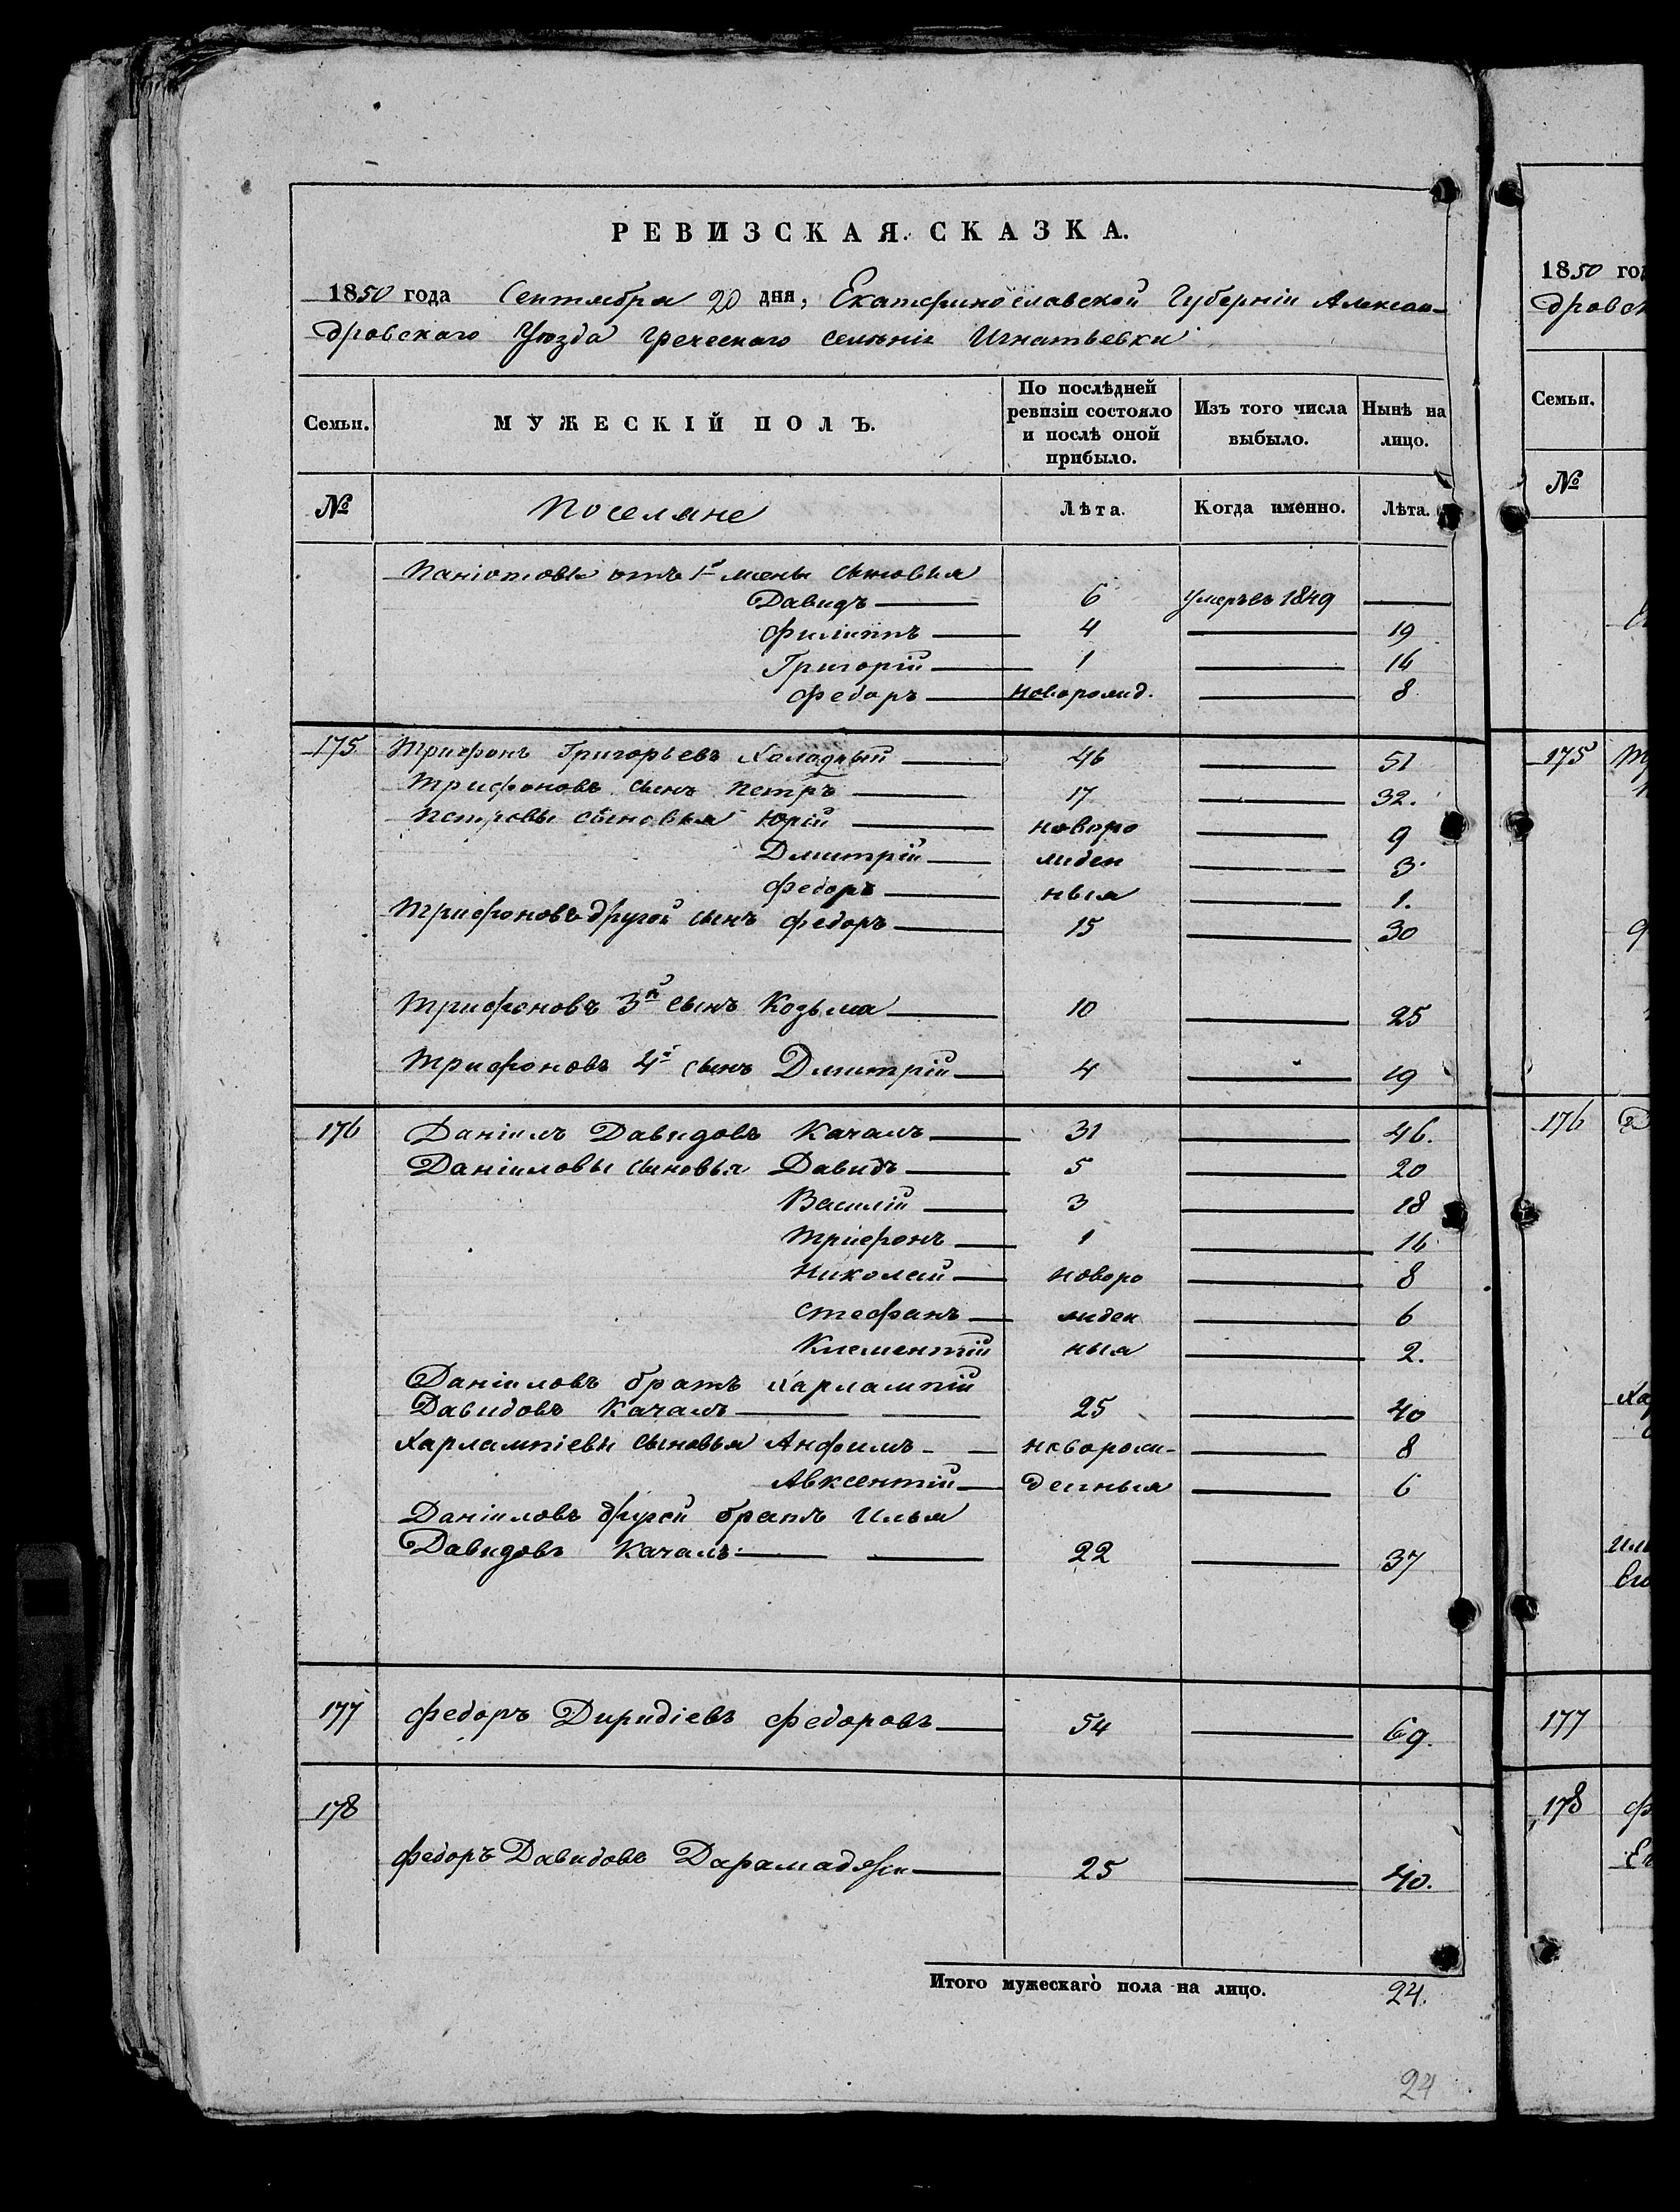 РЕВИЗСКАЯ СКАЗКА.
1850 года Сентября 20 дня, Екатеринославской Губерніи Алексан-
дровскаго Уѣзда греческаго селѣнія Игнатьевки
Семьи.
МУЖЕСКІЙ ПОЛЪ.
По послѣдней ревизіи состояло и послѣ оной прибыло.
Изъ того числа выбыло.
Нынѣ на лицо.
№ Поселяне Лѣта. Когда именно. Лѣта.
Паніотовы отъ 1й жены сыновья
Давидъ 6 умеръ въ 1849
Филиппъ 4 19
Григорій 1 16
Федоръ новорожд. 8
175 Трифонъ Григорьевъ Халаджій 46 51
Трифоновъ сынъ Петръ 17 32.
Петровы сыновья Юрій новоро 9
Дмитрій жден 3
Федоръ ныя 1.
Трифоновъ другой сынъ Федоръ 15 30
Трифоновъ 3й сынъ Козьма 10 25
Трифоновъ 4й сынъ Дмитрій 4 19
176 Даніилъ Давидовъ Качалъ 31 46.
Даніиловы сыновья Давидъ 5 20
Василій 3 18
Трифонъ 1 16
Николай новоро 8
Стефанъ жден 6
Клементій ныя 2.
Даніиловъ братъ Харлампій
Давидовъ Качалъ 25 40
Харлампіевы сыновья Анфимъ новорож- 8
Авксентій денныя 6
Даніиловъ другой братъ Илья
Давидовъ Качалъ 22 37
177 Федоръ Диридіевъ Федоровъ 54 69.
178
Федоръ Давидовъ 25 40.
Итого мужескаго пола на лицо. 24.
24
1850 год
дровск
Семьи.
№
175
176
177
178